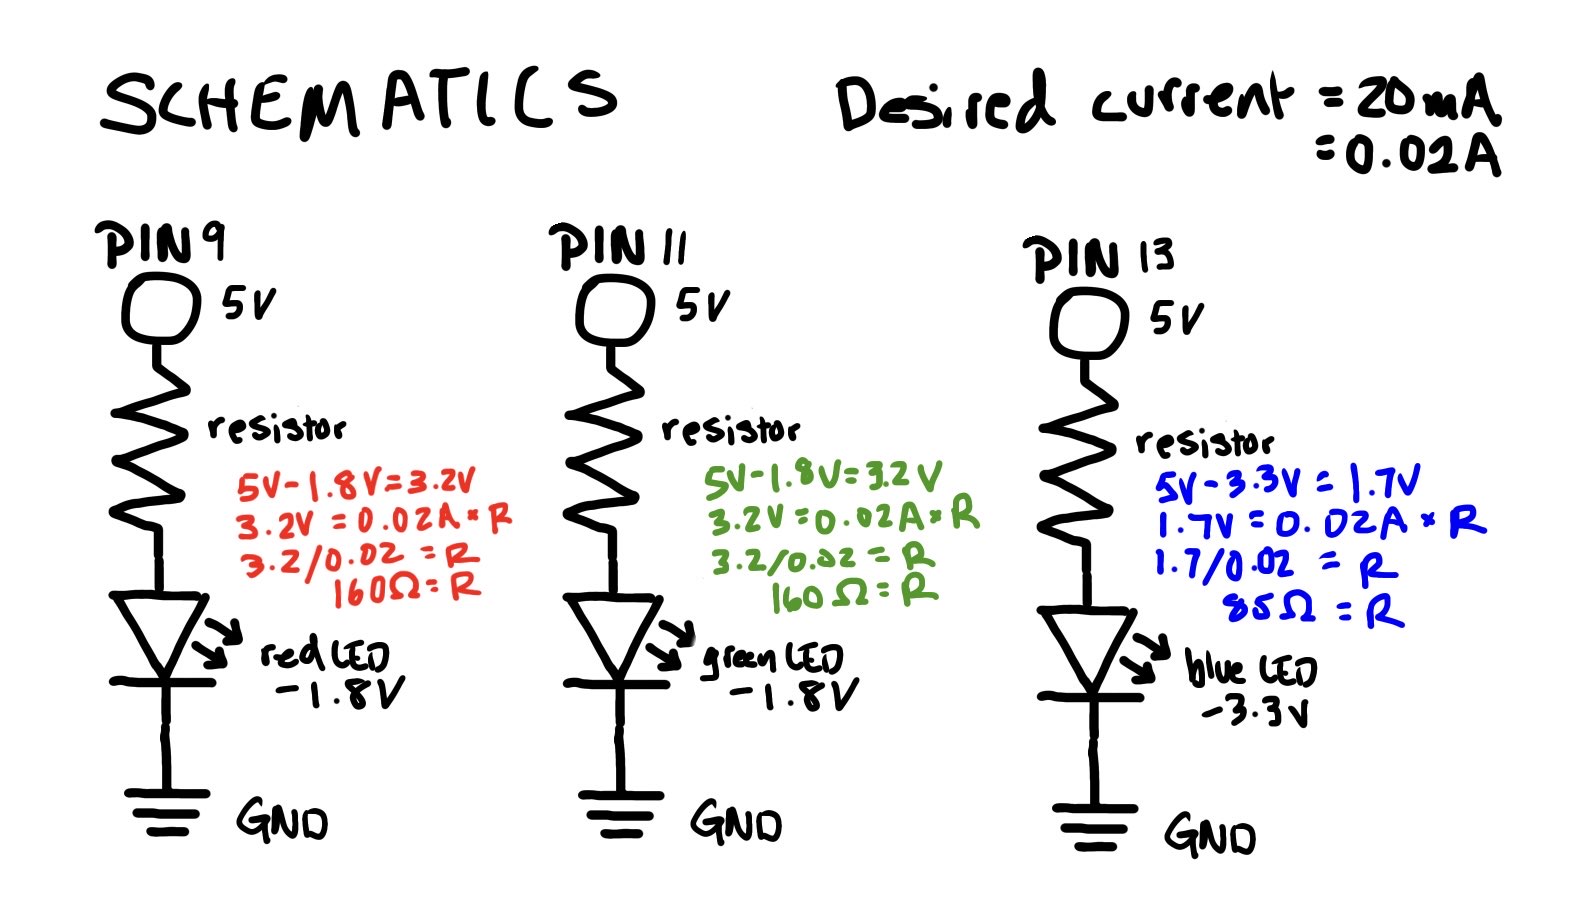 SCHEMATICS
Desired current = 20mA
= 0.02A
PIN 9
5V
resistor
5V-1.8V=3.2V
3.2V = 0.02A * R
3.2/0.02 = R
160Ω = R
red LED
-1.8V
GND
PIN 11
5V
resistor
5V-1.8V=3.2V
3.2V=0.02A*R
3.2/0.02 = R
160Ω=R
green LED
-1.8V
GND
PIN 13
5V
resistor
5V-3.3V = 1.7V
1.7V=0.02A * R
1.7/0.02 = R
85Ω = R
blue LED
-3.3V
GND